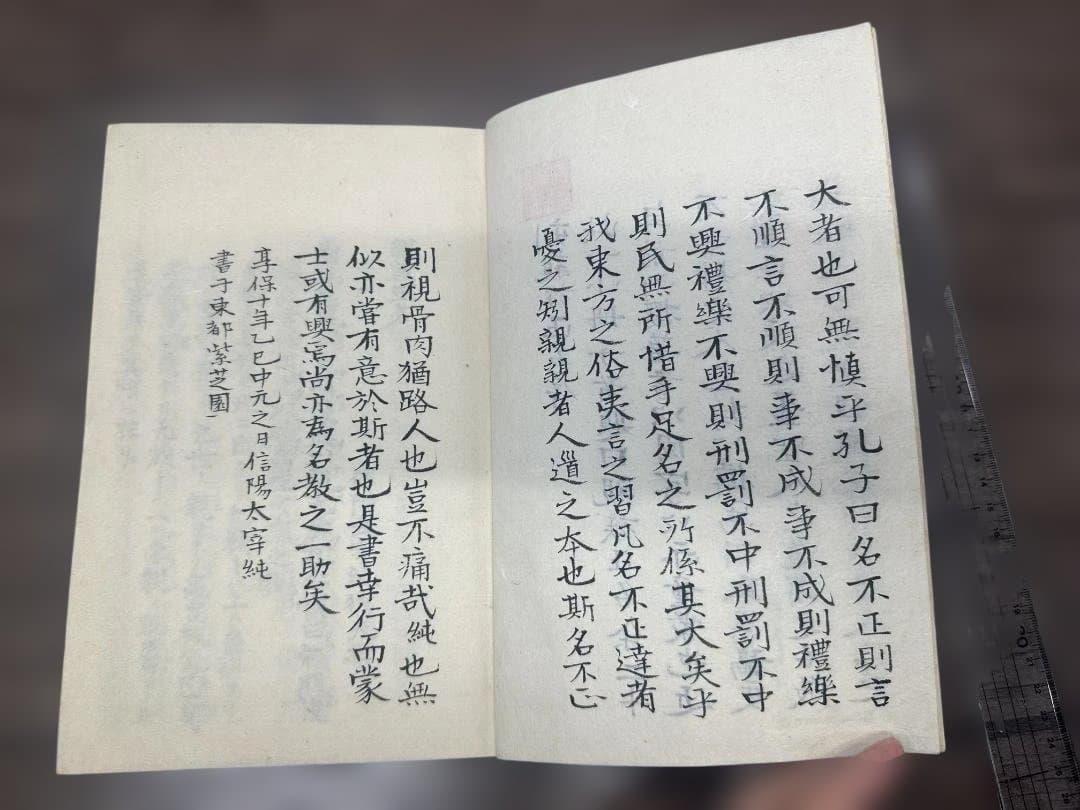 大者也可無慎乎孔子曰名不正則言
不順言不順則事不成事不成則禮樂
不興禮樂不興則刑罰不中刑罰不中
則民無所措手足名之所係其大矣乎
我東方之俗夷言之習凡名不正達者
憂之矧親親者人道之本也斯名不正
則視骨肉猶路人也豈不痛哉純也無
似亦嘗有意於斯者也是書幸行而蒙
士或有興焉尚亦為名教之一助矣
享保十年乙巳中元之日信陽太宰純
書于東都紫芝園